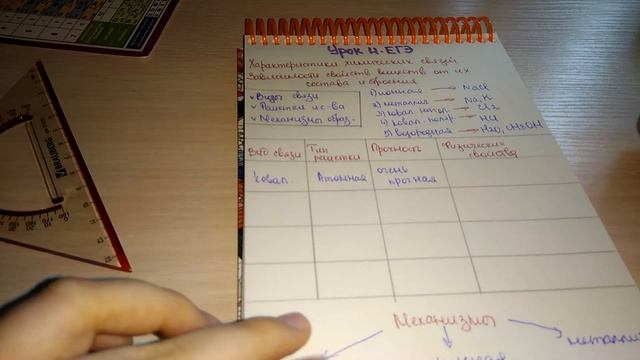 Урок 4. ЕГЭ
Характеристики химических связей.
Зависимости свойств веществ от их
состава и строения
v Виды связи
v Решетки
v Механизмы образ.
1) ионная → NaCl
2) металлич. → Na, K
3) ковал. непол. → Cl2
4) ковал. поляр. → HCl
5) водородная → H2O, CH3OH
Вид связи Тип решетки Прочность Физические свойства
ковал. Атомная очень прочная
Механизмы